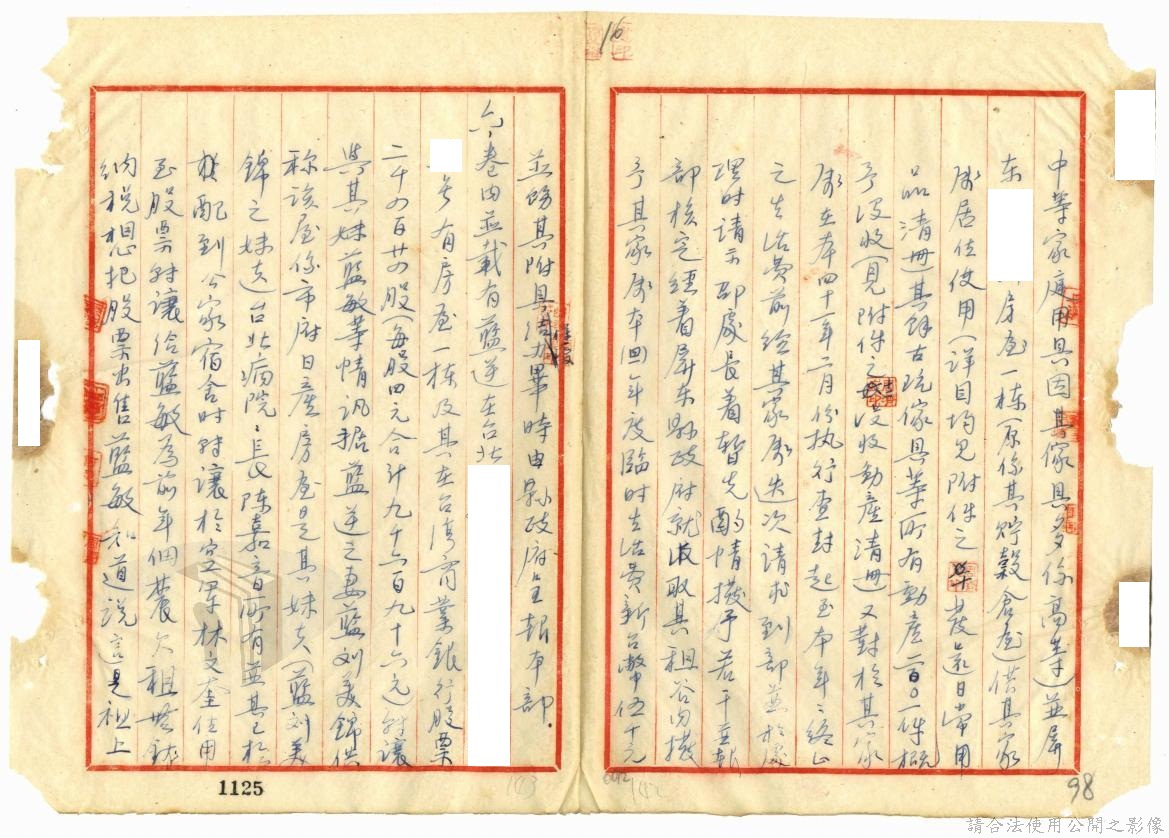 中等家庭用具因其傢具多係高等)並屏
东 房屋一栋(原係其貯穀倉屋)供其家
屬居住使用(詳目均見附件之 發还日常用
品清冊其餘古玩傢具等所有動產二百〇一件概
予沒收(見附件之 沒收動產清冊又對於其家
屬在本四十一年二月份执行查封起至本年年終止
之生活費前經其家屬迭次請求到部並於處
理时請示部處長着暫先酌情撥予若干並報
部核定經着屏东县政府就收取其租谷内撥
予其家屬本四一年度臨时生活費新台幣伍千元
並飭其附具 办畢時由县政府呈報本部.
六、卷内並載有藍逆在台北
号有房屋一栋及其在台湾商業銀行股票
二千四百廿四股(每股四元合計九千六百九十六元)转讓
與其妹藍敏等情訊據藍逆之妻藍刘美錦供
称該屋係市府日產房屋是其妹夫(藍刘美
錦之妹夫)台北病院院長陈嘉音所有並其已於
配到公家宿舍时转讓於空軍林文奎住用
至股票转讓给藍敏為前年佃農欠租無錢
納税想把股票出售藍敏知道説這是祖上
1125
98
16
143
142
請合法使用公開之影像